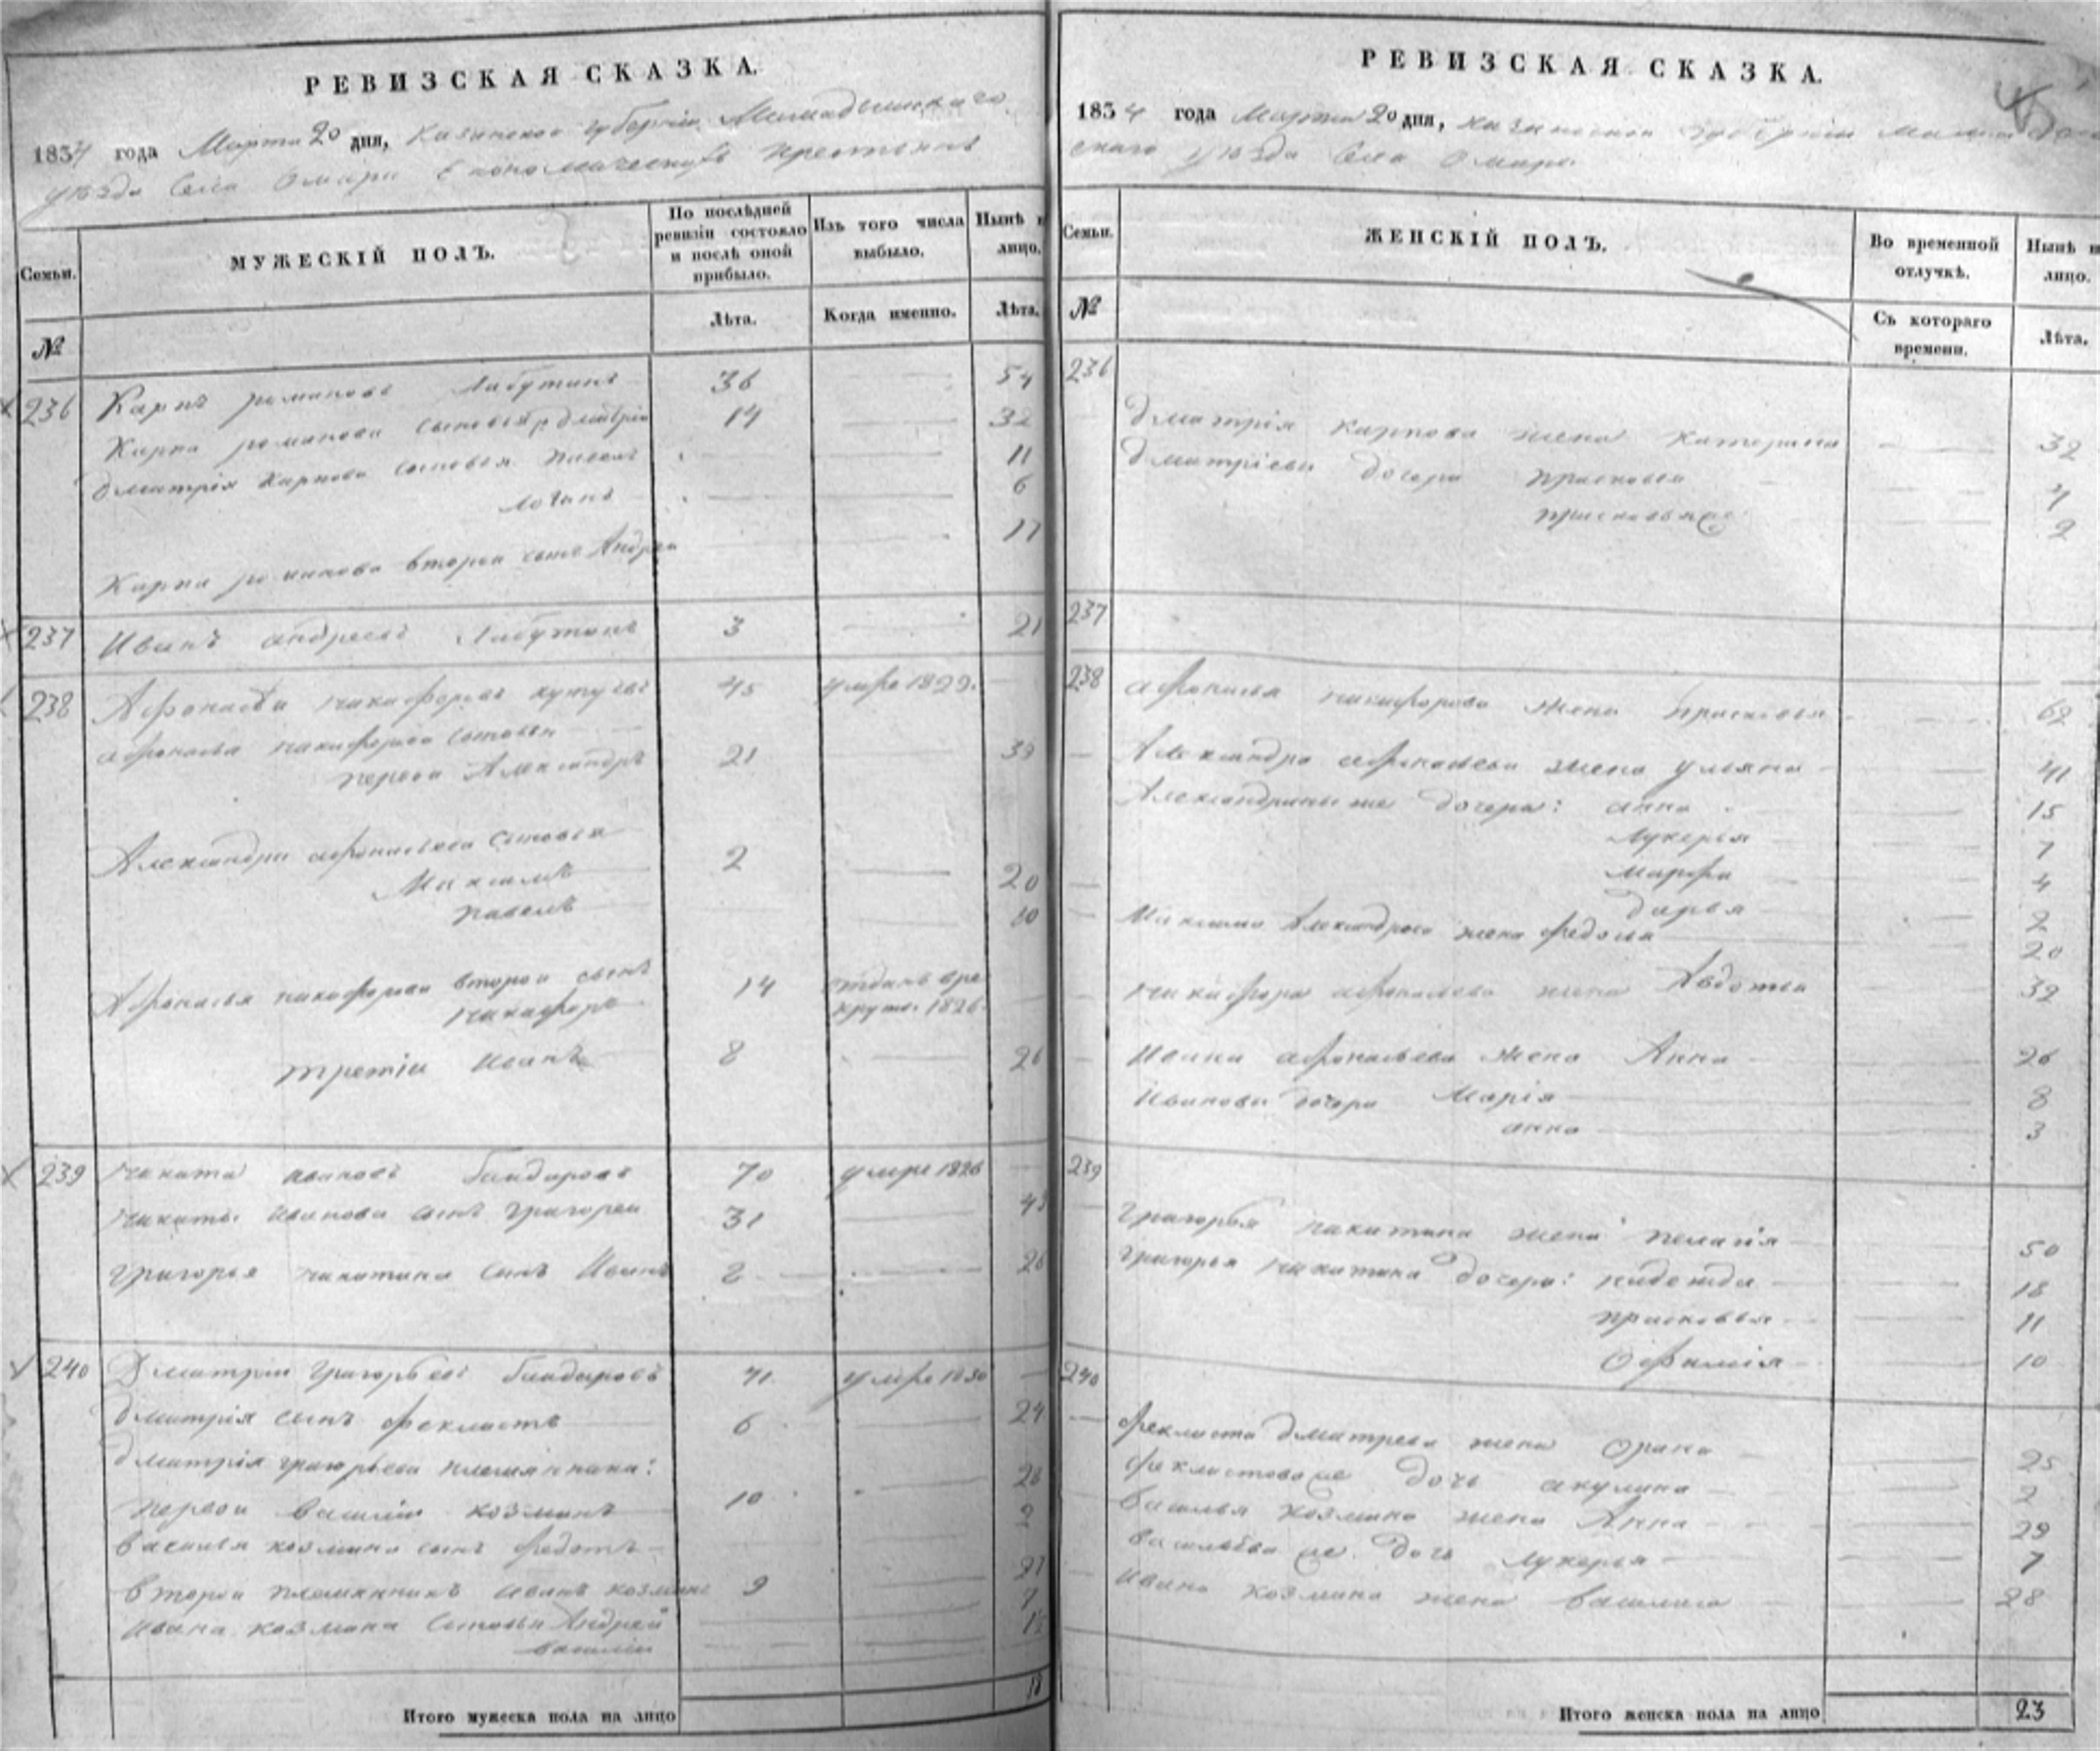 РЕВИЗСКАЯ СКАЗКА.
1834 года Марта 20 дня, Казанской губернии Мамадышскаго
уезда Села Омари Економических крестьянъ
Семьи.
МУЖЕСКІЙ ПОЛЪ.
По послѣдней ревизіи состояло и послѣ оной прибыло.
Изъ того числа выбыло.
Нынѣ н лицо.
№
Лѣта.
Когда именно.
Лѣта.
236 Карпъ романовъ Лабутинъ 36 54
Карпа романова сыновья Дмитрій 14 32
Дмитрія Карпова сыновья павелъ 11
6
Карпа романова второй сынъ Андрей 17
237 Иванъ андреевъ Лабутинъ 3 21
238 Афонасей никифоровъ 45 умре 1829.
афонасья никифорова сыновья
первой Александръ 21 39
Александра афонасьева сыновья
Максимъ 2 20
павелъ 10
Афонасья никифорова второй сынъ
никифоръ 14 отданъ в рекруты. 1826.
третій Иванъ 8 26
239 никита ивановъ Бандаровъ 70 умре 1826
никиты иванова сынъ григорей 31
григорья никитина сынъ Иванъ 2 20
240 Дмитрій григорьевъ Бандаровъ 41 умре 1830
дмитрія сынъ феклистъ 6 24
дмитрія григорьева племянники:
первой василій козминъ 10 28
василья козмина сынъ федотъ 2
второй племянникъ иванъ козминъ 9 27
ивана козмина сыновья Андрей 7
василій
Итого мужеска пола на лицо 18
РЕВИЗСКАЯ СКАЗКА.
1834 года Марта 20 дня, казанской губерніи мамадыш
скаго уезда Села Омари.
Семьи.
ЖЕНСКІЙ ПОЛЪ.
Во временной отлучкѣ.
Нынѣ н лицо.
№
Съ котораго времени.
Лѣта.
236
Дмитрія карпова жена катерина 32
Дмитріевы дочери прасковья 4
прасковья же 2
237
238 афонасья никифорова жена прасковья 62
Александра афонасьева жена ульяна 41
Александрины же дочери: анна 15
лукерья 7
марфа 4
дарья 2
Максима Александрова жена федосья 20
никифора афонасьева жена Авдотья 32
Ивана афонасьева жена Анна 26
Ивановы дочери Марія 8
анна 3
239
григорья никитина жена пелагія 50
григорья никитина дочери: надежда 18
прасковья 11
Офимія 10
240
феклиста дмитрева жена Орина 25
феклистова же дочь акулина 2
василья козмина жена Анна 29
васильева же дочь лукерья 7
ивана козмина жена василиса 28
Итого женска пола на лицо 23